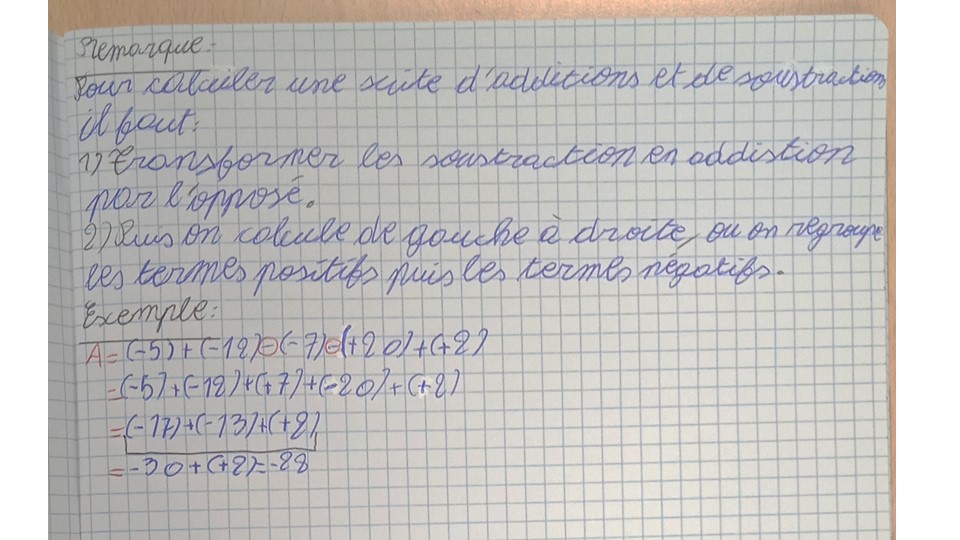 Remarque:
Pour calculer une suite d'additions et de soustraction
il faut:
1) transformer les soustraction en addistion
par l'opposé.
2) Puis on calcule de gauche à droite, ou on regroupe
les termes positifs puis les termes négatifs.
Exemple:
A = (-5) + (-12) - (-7) - (+20) + (+2)
= (-5) + (-12) + (+7) + (-20) + (+2)
= (-17) + (-13) + (+2)
= -30 + (+2) = -28